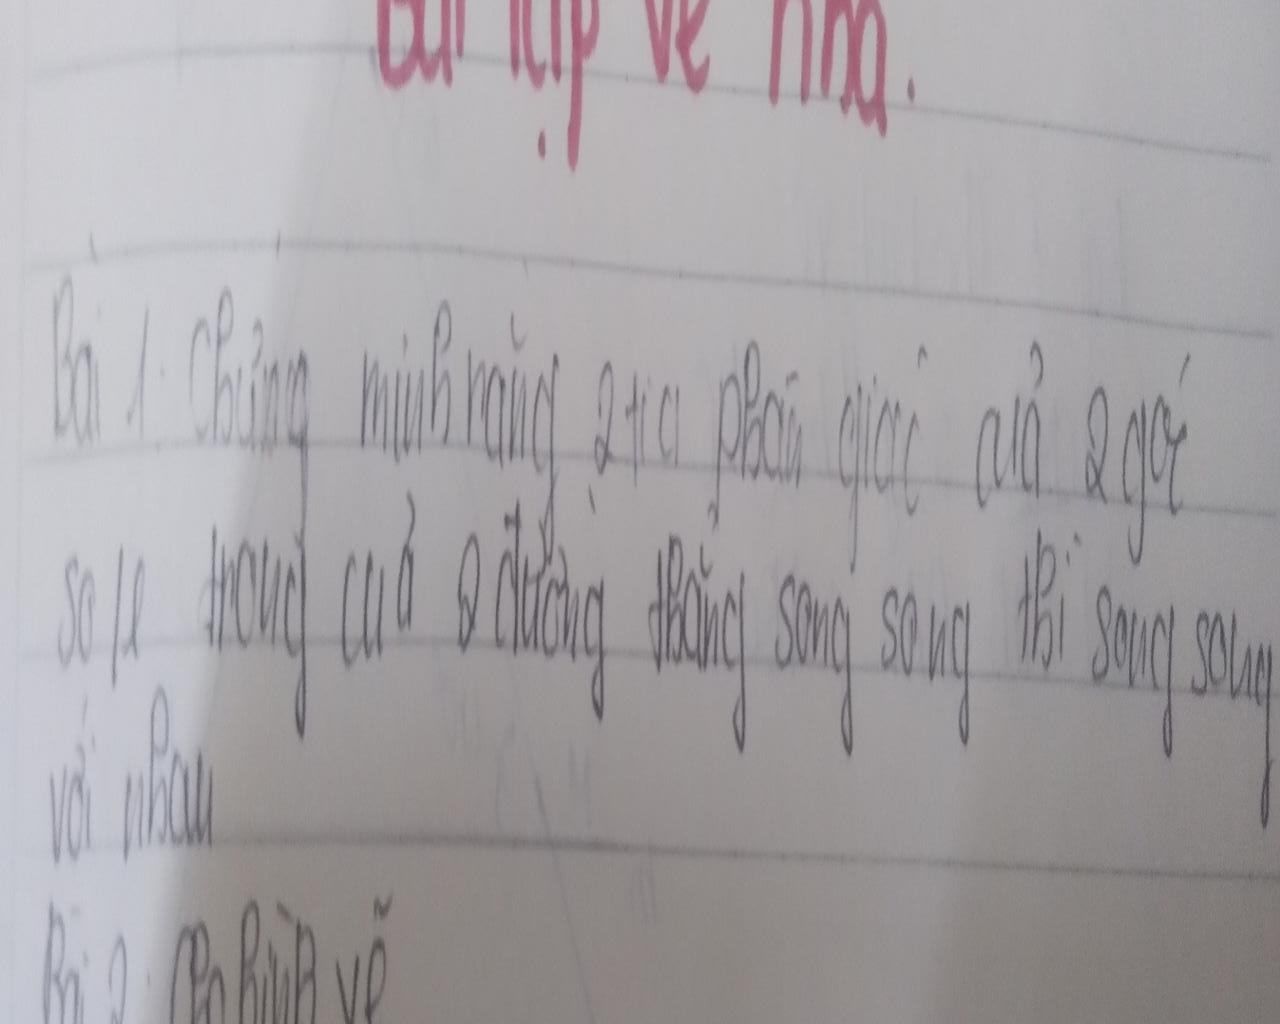 Bài tập về nhà.
Bài 1. Chứng minh rằng 2 tia phân giác của 2 góc
so le trong của 2 đường thẳng song song thì song song
với nhau
Bài 2. Cho hình vẽ